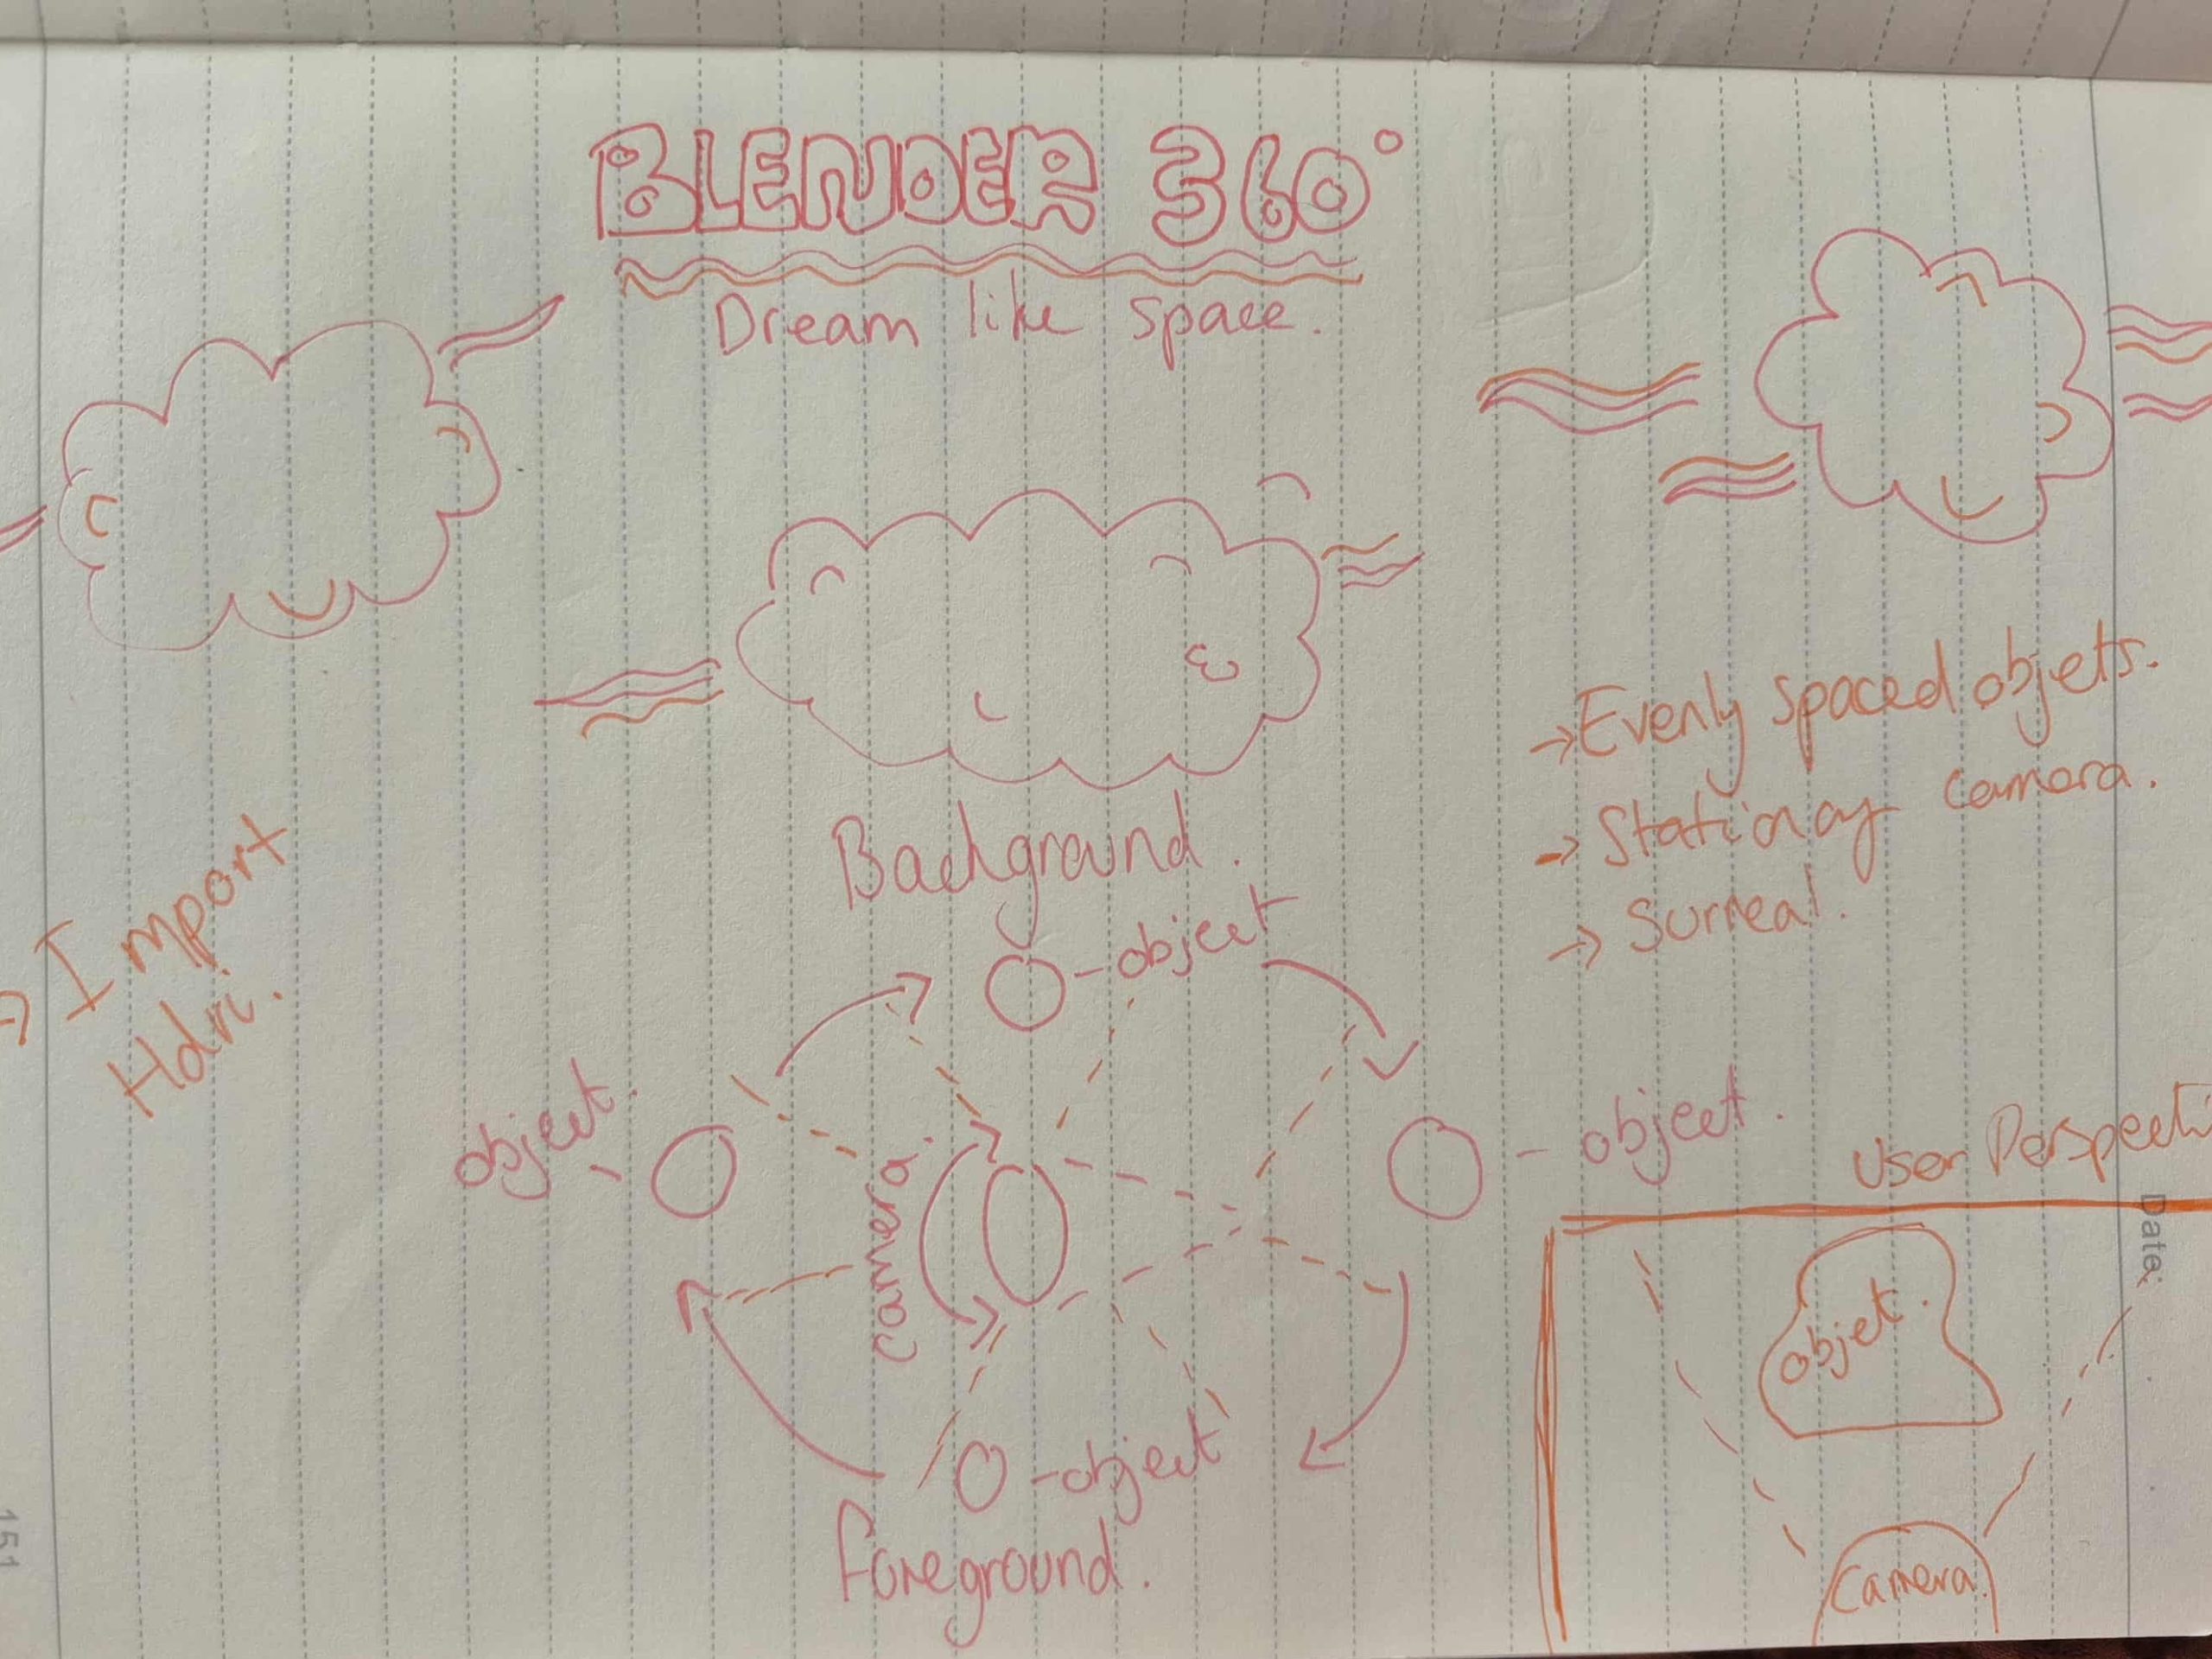 BLENDER 360°
Dream like space.
→ Evenly spaced objets.
→ Stationay camera.
→ Surreal.
Background.
→ Import
Hdri.
-object
object. -
- object.
camera.
User Perspecti
Date:
objet.
-object
foreground.
camera.
151